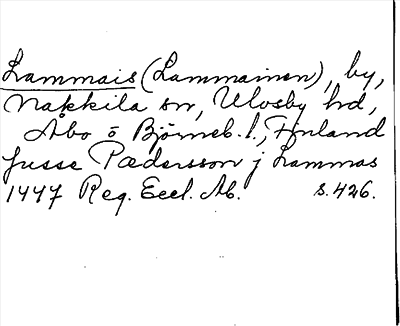 Lammais (Lammainen), by,
Nakkila sn, Ulvsby hd,
Åbo o Björneb. l., Finland
Jusse Pædersson j Lammas
1447 Reg. Eccl. Ab. s. 426.